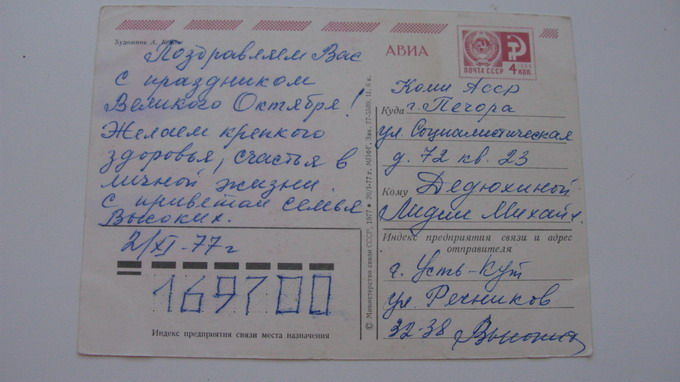 Художник А.
Поздравляем Вас
с праздником
Великого Октября!
Желаем крепкого
здоровья, счастья в
личной жизни.
с приветом семья
Высоких.
2/XI-77 г
169700
Индекс предприятия связи места назначения
© Министерство связи СССР, 1977
АВИА
ПОЧТА СССР 4 КОП.
Коми Асср
Куда г. Печора
ул Социалистическая
д. 72 кв. 23
Кому Дедюхиной
Лидии Михайл.
Индекс предприятия связи и адрес
отправителя
г. Усть-Кут
ул. Речников
32-38